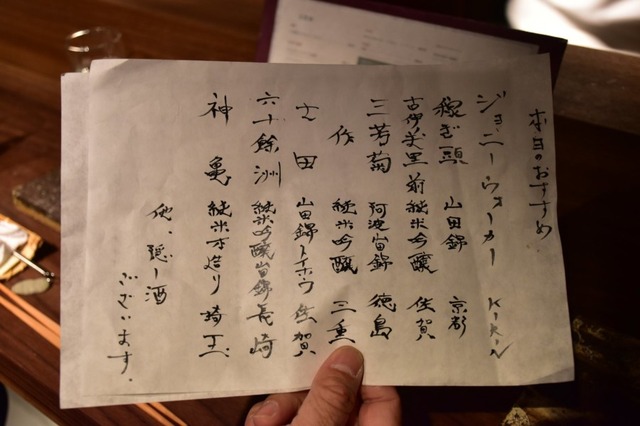 本日のおすすめ
ジョニーウォーカー KIRIN
稼ぎ頭 山田錦 京都
古伊万里 前 純米吟醸 佐賀
三芳菊 阿波山田錦 徳島
作 純米吟醸 三重
七田 山田錦 佐賀
六十餘洲 純米吟醸山田錦 長崎
神亀 純米 造り 埼玉
他、隠し酒
ございます。